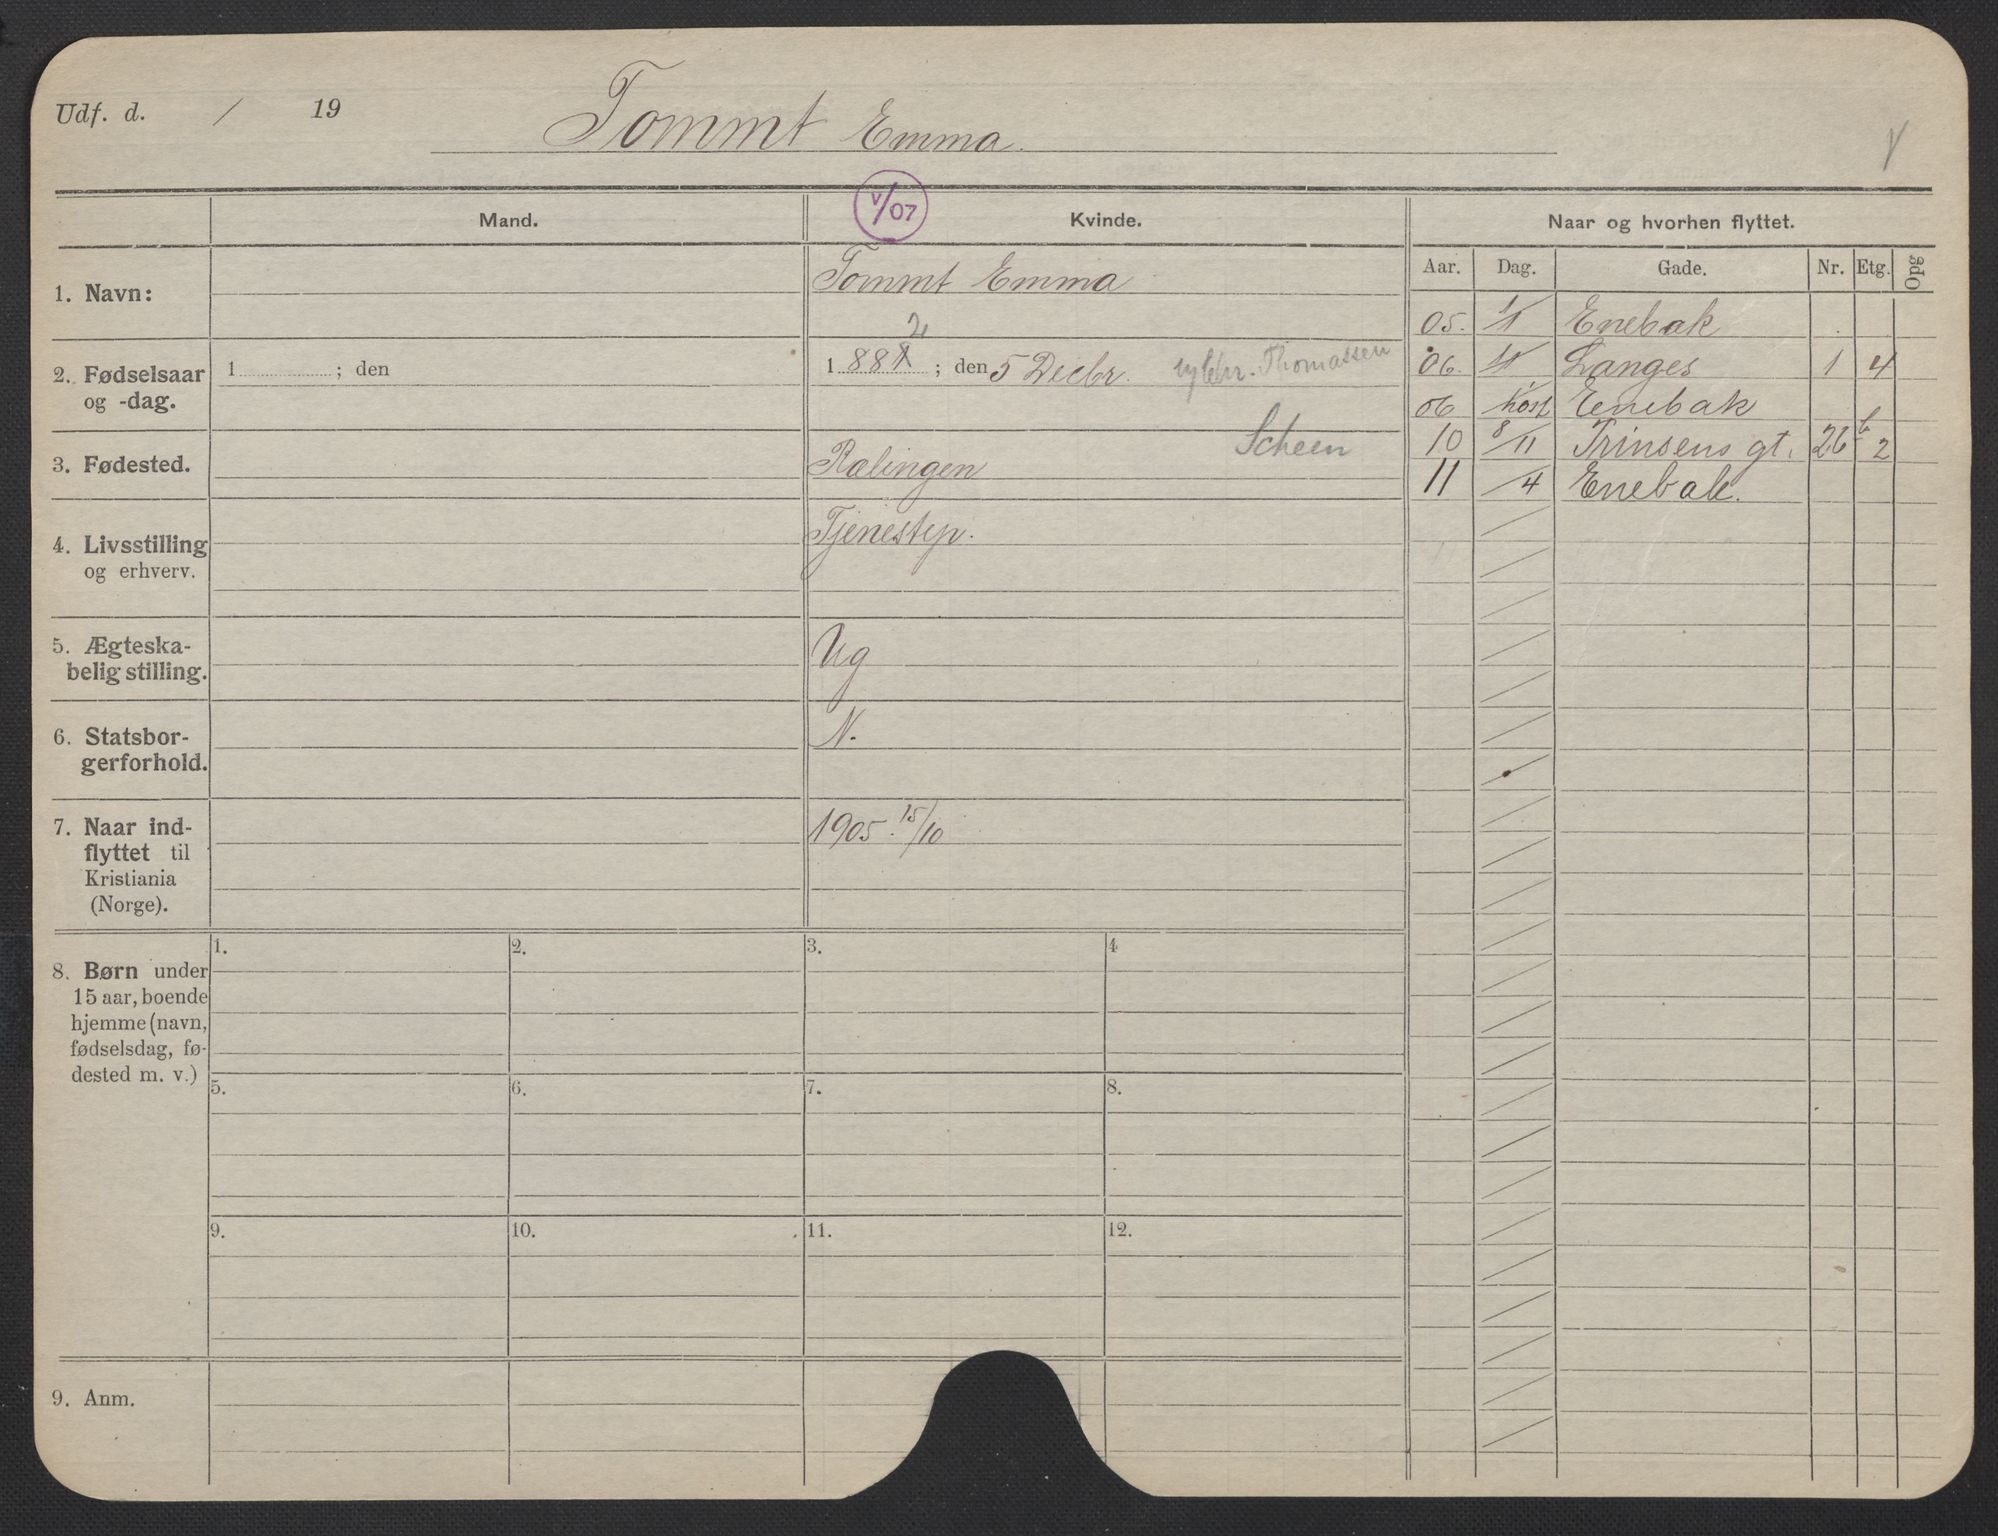 Udf. d. / 19
Tommt Emma.
V
V/07
Mand.
Kvinde.
Naar og hvorhen flyttet.
Aar. Dag. Gade. Nr. Etg. Opg
1. Navn:
Tommt Emma
2. Fødselsaar
og -dag.
1 ; den
2
1 888 ; den 5 Decbr. Thomassen
Scheen
3. Fødested.
Rælingen
4. Livsstilling
og erhverv.
Tjenestep.
5. Ægteska-
belig stilling.
Ug
6. Statsbor-
gerforhold.
N.
7. Naar ind-
flyttet til
Kristiania
(Norge).
1905. 15/10
05. 1/1 Enebak
06. 1/1 Langes 1 4
06 høst Enebak
10 8/11 Trinsens gt. 26 b 2
11 /4 Enebak.
8. Børn under
15 aar, boende
hjemme (navn,
fødselsdag, fø-
dested m. v.)
1. 2. 3. 4
5. 6. 7. 8.
9. 10. 11. 12.
9. Anm.